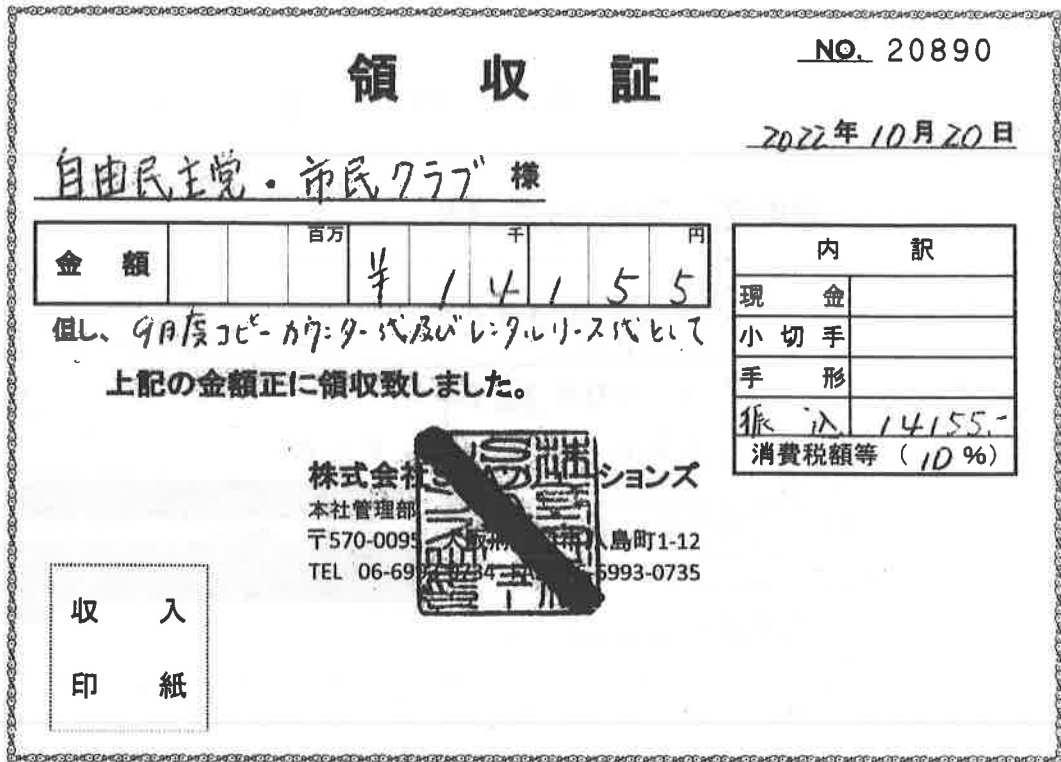 NO. 20890
領収証
2022年10月20日
自由民主党・市民クラブ 様
金額 百万 千 円
¥14155
但し、9月度コピーカウンター代及びレンタルリース代として
上記の金額正に領収致しました。
内訳
現金
小切手
手形
振込 14155.-
消費税額等（10%）
株式会社 ションズ
本社管理部
〒570-0095 八島町1-12
TEL 06-699 6993-0735
収入
印紙